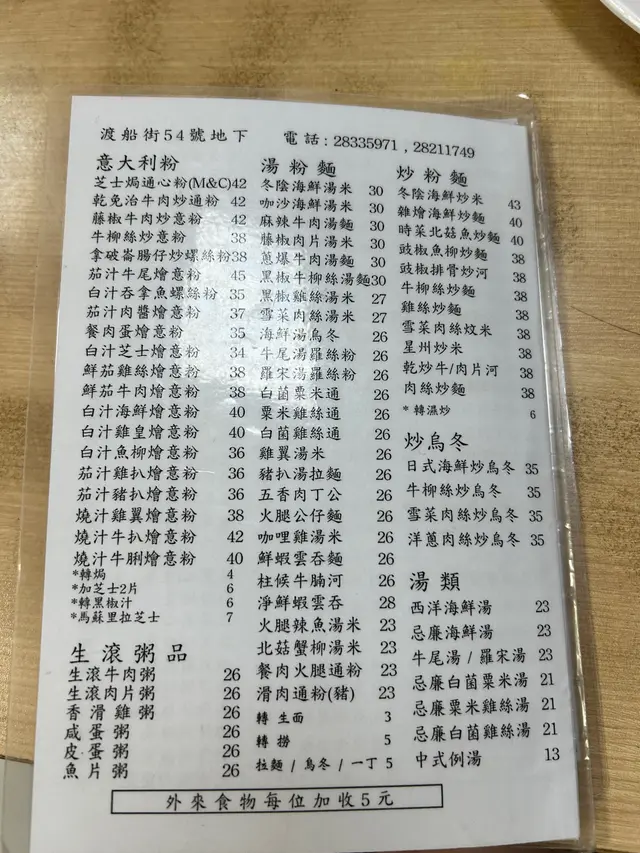 渡船街54號地下 電話:28335971,28211749
意大利粉
芝士焗通心粉(M&C)42
乾免治牛肉炒通粉 42
藤椒牛肉炒意粉 42
牛柳絲炒意粉 38
拿破崙腸仔炒螺絲粉38
茄汁牛尾燴意粉 45
白汁吞拿魚螺絲粉 35
茄汁肉醬燴意粉 37
餐肉蛋燴意粉 35
白汁芝士燴意粉 34
鮮茄雞絲燴意粉 38
鮮茄牛肉燴意粉 38
白汁海鮮燴意粉 40
白汁雞皇燴意粉 40
白汁魚柳燴意粉 36
茄汁雞扒燴意粉 36
茄汁豬扒燴意粉 36
燒汁雞翼燴意粉 38
燒汁牛扒燴意粉 42
燒汁牛脷燴意粉 40
*轉焗 4
*加芝士2片 6
*轉黑椒汁 6
*馬蘇里拉芝士 7
生滾粥品
生滾牛肉粥 26
生滾肉片粥 26
香滑雞粥 26
咸蛋粥 26
皮蛋粥 26
魚片粥 26
湯粉麵
冬陰海鮮湯米 30
咖沙海鮮湯米 30
麻辣牛肉湯麵 30
藤椒肉片湯米 30
蔥爆牛肉湯麵 30
黑椒牛柳絲湯麵30
黑椒雞絲湯米 27
雪菜肉絲湯米 27
海鮮湯烏冬 26
牛尾湯羅絲粉 26
羅宋湯羅絲粉 26
白菌粟米通 26
粟米雞絲通 26
白菌雞絲通 26
雞翼湯米 26
豬扒湯拉麵 26
五香肉丁公 26
火腿公仔麵 26
咖哩雞湯米 26
鮮蝦雲吞麵 26
柱候牛腩河 26
淨鮮蝦雲吞 28
火腿辣魚湯米 23
北菇蟹柳湯米 23
餐肉火腿通粉 23
滑肉通粉(豬) 23
轉 生面 3
轉 撈 5
拉麵 / 烏冬 / 一丁 5
炒粉麵
冬陰海鮮炒米 43
雜燴海鮮炒麵 40
時菜北菇魚炒麵 40
豉椒魚柳炒麵 38
豉椒排骨炒河 38
牛柳絲炒麵 38
雞絲炒麵 38
雪菜肉絲炆米 38
星州炒米 38
乾炒牛/肉片河 38
肉絲炒麵 38
* 轉濕炒 6
炒烏冬
日式海鮮炒烏冬 35
牛柳絲炒烏冬 35
雪菜肉絲炒烏冬 35
洋蔥肉絲炒烏冬 35
湯類
西洋海鮮湯 23
忌廉海鮮湯 23
牛尾湯/羅宋湯 23
忌廉白菌粟米湯 21
忌廉粟米雞絲湯 21
忌廉白菌雞絲湯 21
中式例湯 13
外來食物每位加收5元